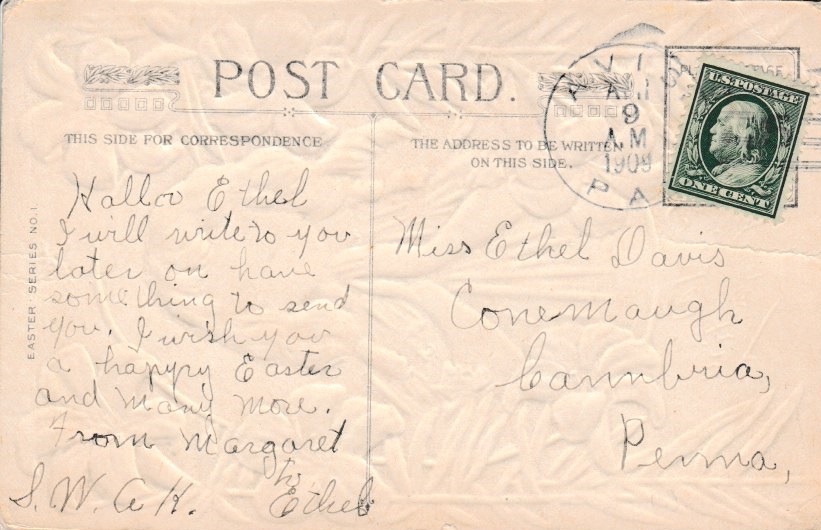 POST CARD.
THIS SIDE FOR CORRESPONDENCE
THE ADDRESS TO BE WRITTEN
ON THIS SIDE.
EASTER SERIES NO. 1.
AVIS
9
A.M
1909
PA
U.S. POSTAGE
ONE CENT
Halloo Ethel
I will write to you
later on have
something to send
you. I wish you
a happy Easter
and many more.
From Margaret
to
S. W. A. K. Ethel
Miss Ethel Davis
Conemaugh
Cambria,
Penna,